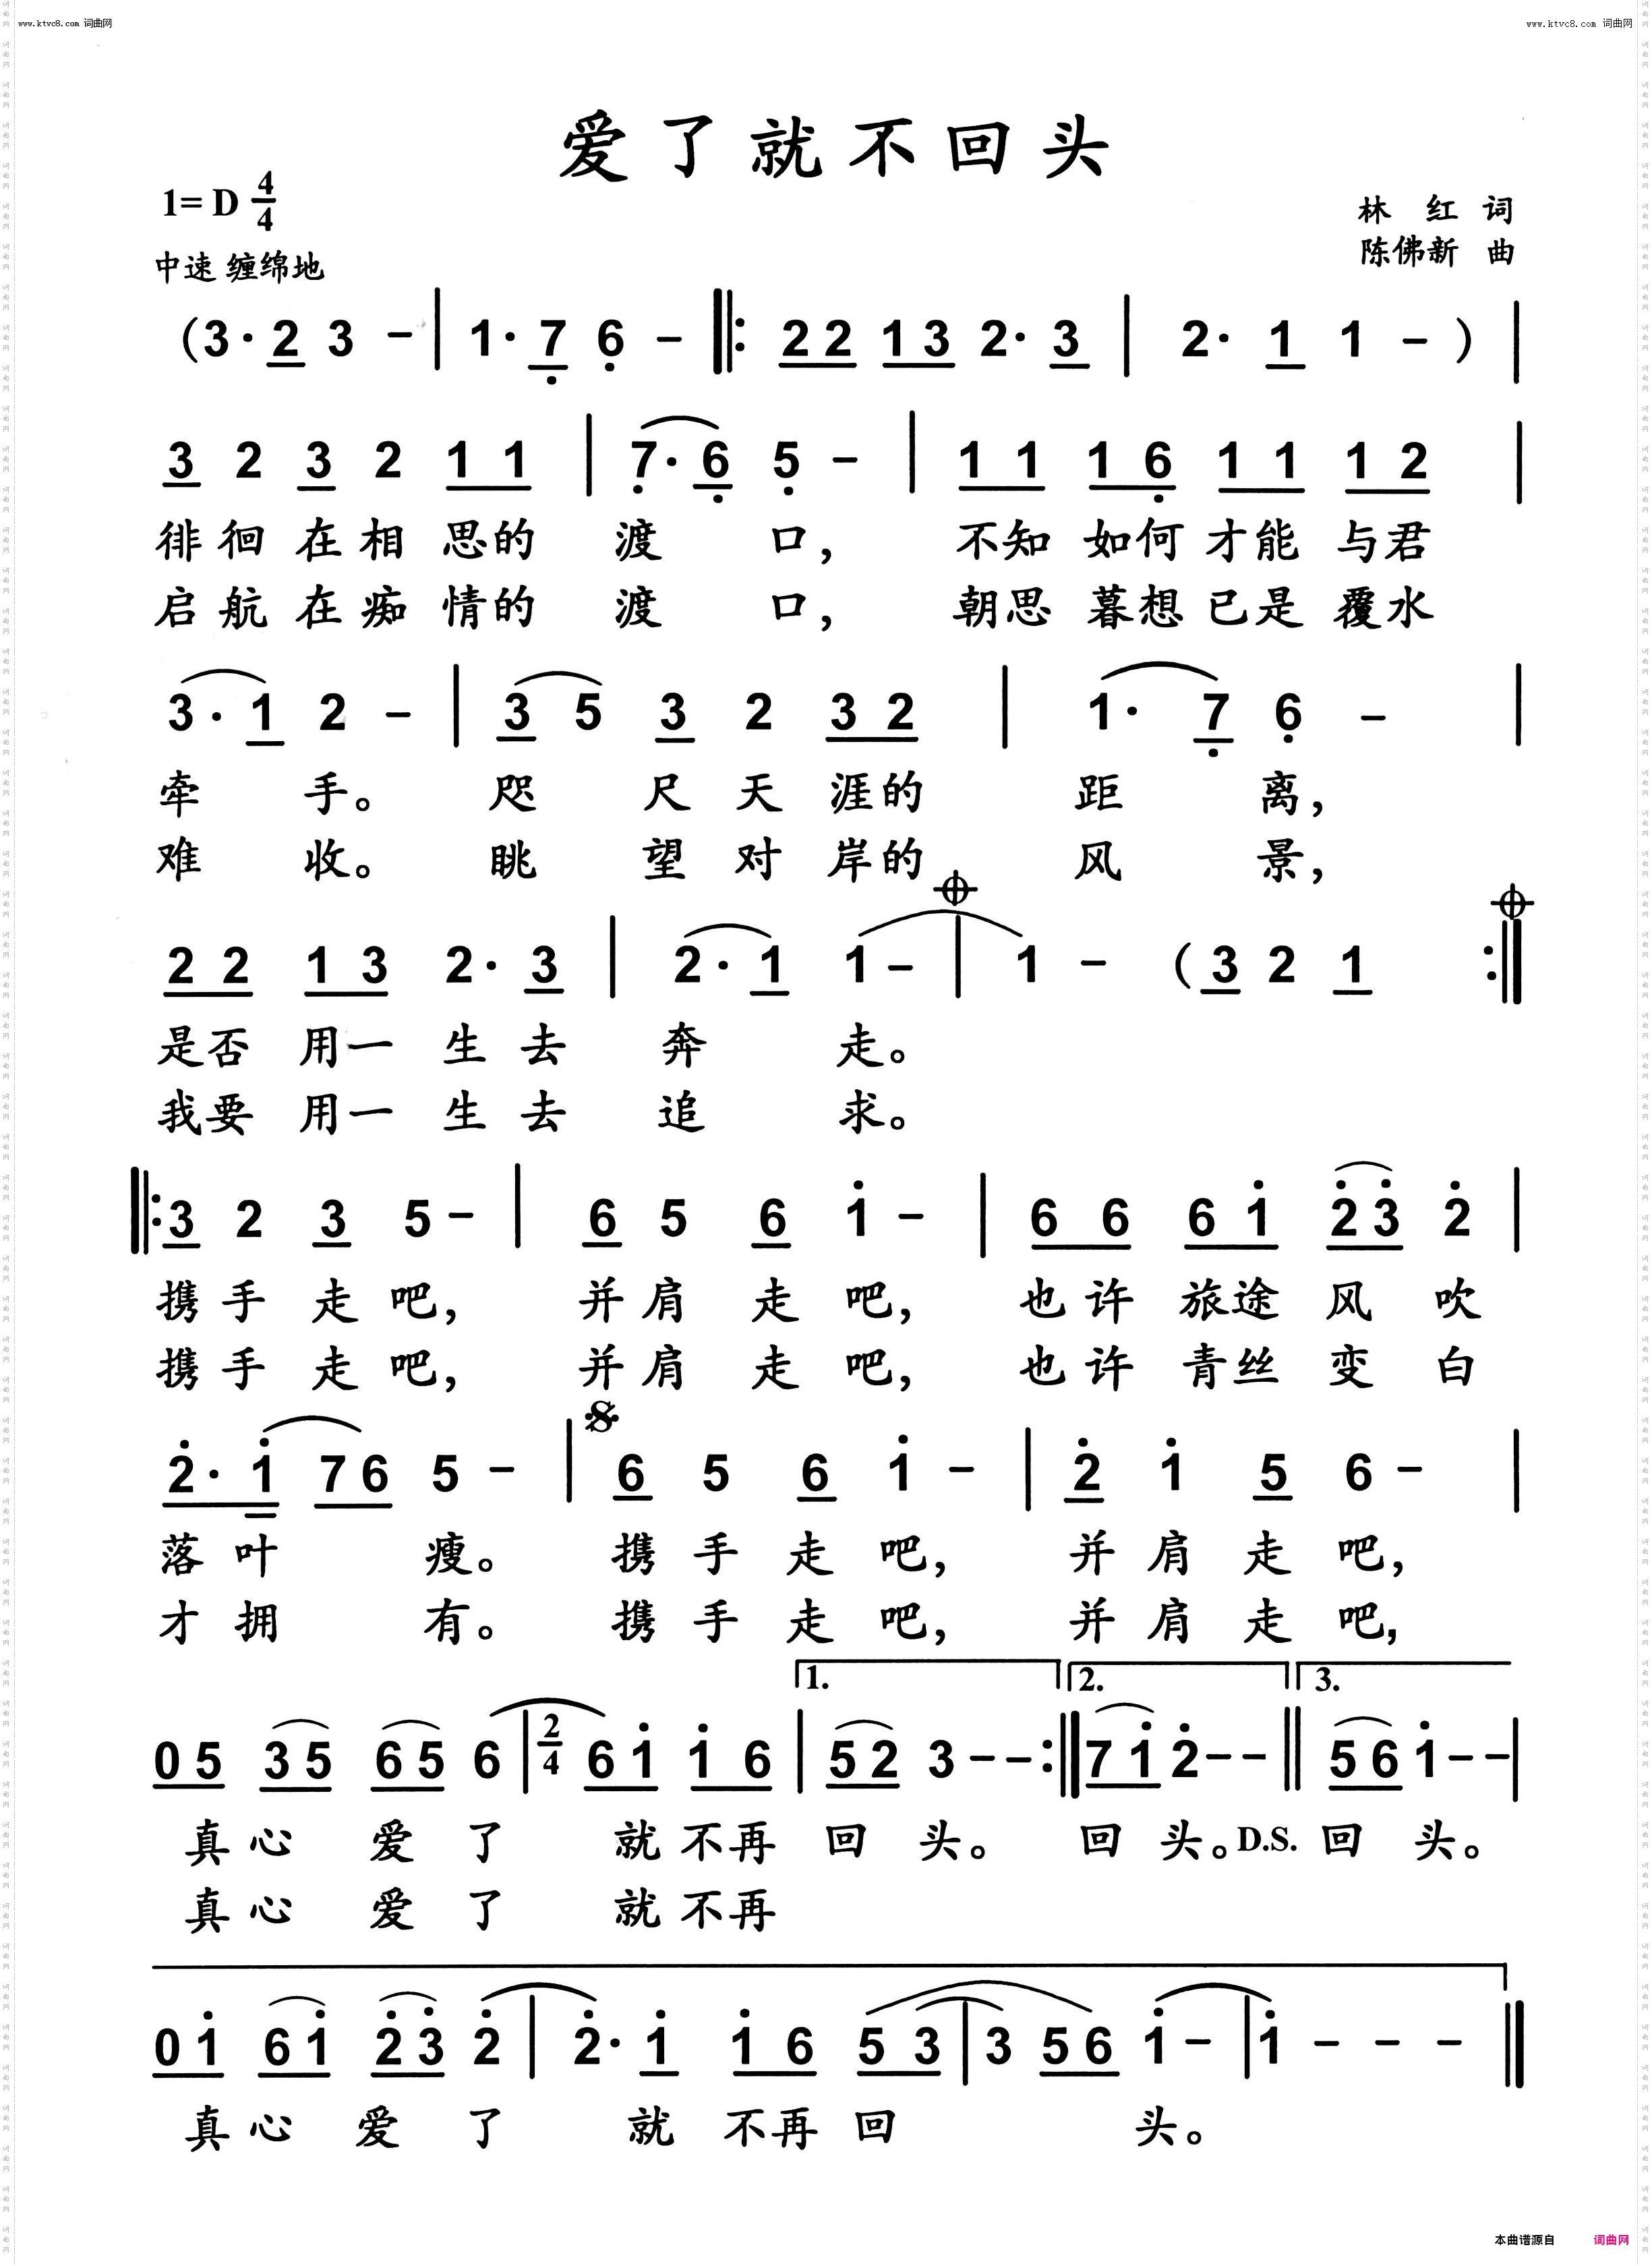 www.ktvc8.com 词曲网
www.ktvc8.com 词曲网
爱了就不回头
1= D 4/4
林 红 词
中速 缠绵地
陈佛新 曲
(3· 2 3 - | 1· 7 6 - ‖: 2 2 1 3 2· 3 | 2· 1 1 - ) |
3 2 3 2 1 1 | 7· 6 5 - | 1 1 1 6 1 1 1 2 |
徘徊在相思的渡口，不知如何才能与君
启航在痴情的渡口，朝思暮想已是覆水
3· 1 2 - | 3 5 3 2 3 2 | 1· 7 6 - |
牵手。咫尺天涯的距离，
难收。眺望对岸的风景，
2 2 1 3 2· 3 | 2· 1 1 - | 1 - (3 2 1 :‖
是否用一生去奔走。
我要用一生去追求。
‖: 3 2 3 5 - | 6 5 6 1 - | 6 6 6 1 2 3 2 |
携手走吧，并肩走吧，也许旅途风吹
携手走吧，并肩走吧，也许青丝变白
2· 1 7 6 5 - | 6 5 6 1 - | 2 1 5 6 - |
落叶瘦。携手走吧，并肩走吧，
才拥有。携手走吧，并肩走吧，
1. 2. 3.
0 5 3 5 6 5 6 | 2/4 6 1 1 6 | 5 2 3 - - :‖ 7 1 2 - - ‖ 5 6 1 - - |
真心爱了就不再回头。回头。D.S.回头。
真心爱了就不再
0 1 6 1 2 3 2 | 2· 1 1 6 5 3 | 3 5 6 1 - | 1 - - - ‖
真心爱了就不再回头。
本曲谱源自 词曲网